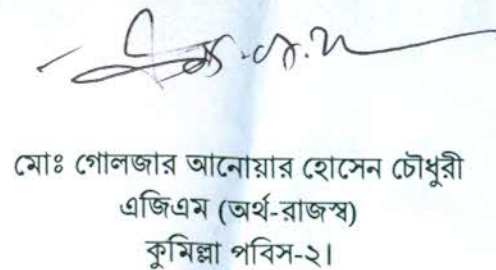 মোঃ গোলজার আনোয়ার হোসেন চৌধুরী
এজিএম (অর্থ-রাজস্ব)
কুমিল্লা পবিস-২।